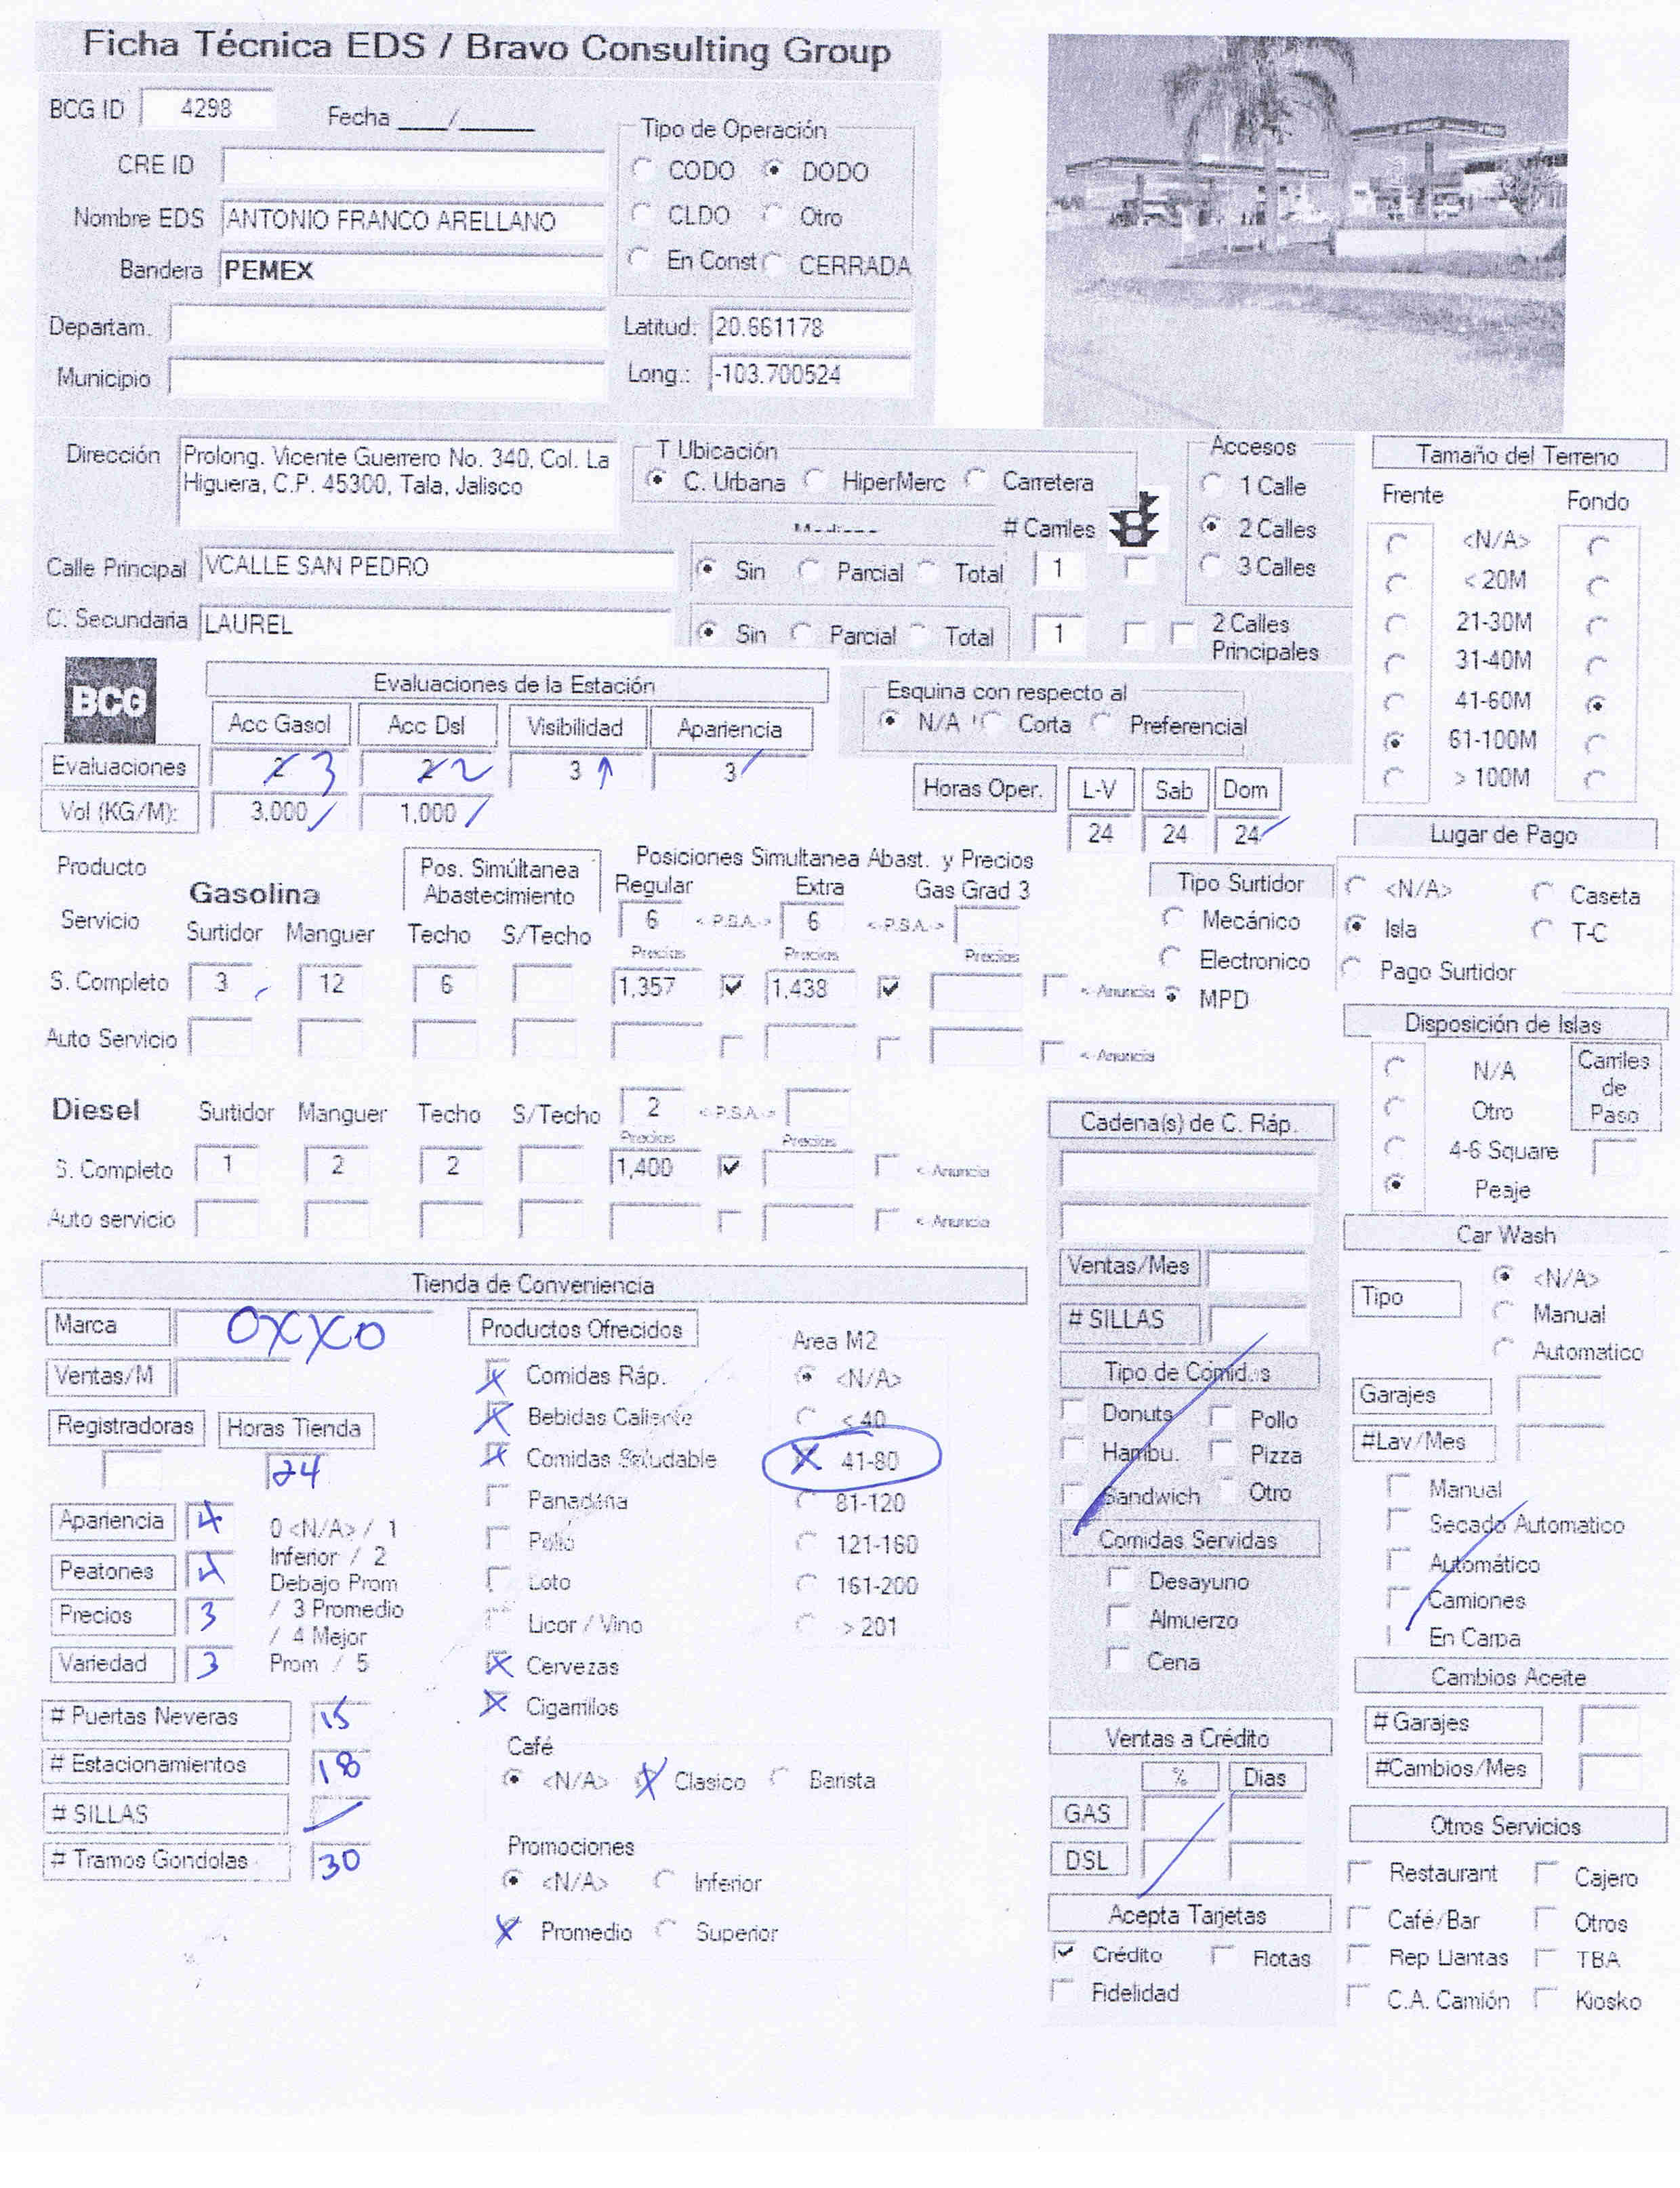 Ficha Técnica EDS / Bravo Consulting Group
BCG ID 4298 Fecha ___/_____
CRE ID
Nombre EDS ANTONIO FRANCO ARELLANO
Bandera PEMEX
Departam.
Municipio
Tipo de Operación
CODO DODO
CLDO Otro
En Const CERRADA
Latitud: 20.661178
Long.: -103.700524
Dirección Prolong. Vicente Guerrero No. 340, Col. La
Higuera, C.P. 45300, Tala, Jalisco
T Ubicación
C. Urbana HiperMerc Carretera
# Carriles
Calle Principal VCALLE SAN PEDRO
Sin Parcial Total 1
C. Secundaria LAUREL
Sin Parcial Total 1
2 Calles
Principales
Accesos
1 Calle
2 Calles
3 Calles
Tamaño del Terreno
Frente Fondo
<N/A>
< 20M
21-30M
31-40M
41-60M
61-100M
> 100M
BCG
Evaluaciones de la Estación
Acc Gasol Acc Dsl Visibilidad Apariencia
Evaluaciones 2 3 2 2 3 3
Vol (KG/M): 3,000 1,000
Esquina con respecto al
N/A Corta Preferencial
Horas Oper. L-V Sab Dom
24 24 24
Lugar de Pago
<N/A> Caseta
Isla T-C
Pago Surtidor
Producto
Servicio
Gasolina
Pos. Simúltanea
Abastecimiento
Posiciones Simultanea Abast. y Precios
Regular Extra Gas Grad 3
6 <-P.S.A.-> 6 <-P.S.A.->
Surtidor Manguer Techo S/Techo
Precios Precios Precios
S. Completo 3 12 6 1,357 1,438 <- Anuncia
Auto Servicio <- Anuncia
Tipo Surtidor
Mecánico
Electronico
MPD
Disposición de Islas
N/A
Otro
4-6 Square
Peaje
Carriles
de
Paso
Diesel Surtidor Manguer Techo S/Techo 2 <-P.S.A.->
Precios Precios
S. Completo 1 2 2 1,400 <- Anuncia
Auto servicio <- Anuncia
Cadena(s) de C. Ráp.
Ventas/Mes
# SILLAS
Tipo de Comidas
Donuts Pollo
Hambu. Pizza
Sandwich Otro
Comidas Servidas
Desayuno
Almuerzo
Cena
Car Wash
Tipo
<N/A>
Manual
Automatico
Garajes
#Lav/Mes
Manual
Secado Automatico
Automático
Camiones
En Carpa
Tienda de Conveniencia
Marca OXXO
Ventas/M
Registradoras Horas Tienda
24
Apariencia 4
Peatones 4
Precios 3
Variedad 3
0 <N/A> / 1
Inferior / 2
Debajo Prom
/ 3 Promedio
/ 4 Mejor
Prom / 5
# Puertas Neveras 15
# Estacionamientos 18
# SILLAS
# Tramos Gondolas 30
Productos Ofrecidos
Comidas Ráp.
Bebidas Caliente
Comidas Saludable
Panadería
Pollo
Loto
Licor / Vino
Cervezas
Cigarrillos
Area M2
<N/A>
< 40
41-80
81-120
121-160
161-200
> 201
Café
<N/A> Clasico Barista
Promociones
<N/A> Inferior
Promedio Superior
Ventas a Crédito
% Dias
GAS
DSL
Acepta Tarjetas
Crédito Flotas
Fidelidad
Cambios Aceite
# Garajes
#Cambios/Mes
Otros Servicios
Restaurant Cajero
Café/Bar Otros
Rep Llantas TBA
C.A. Camión Kiosko